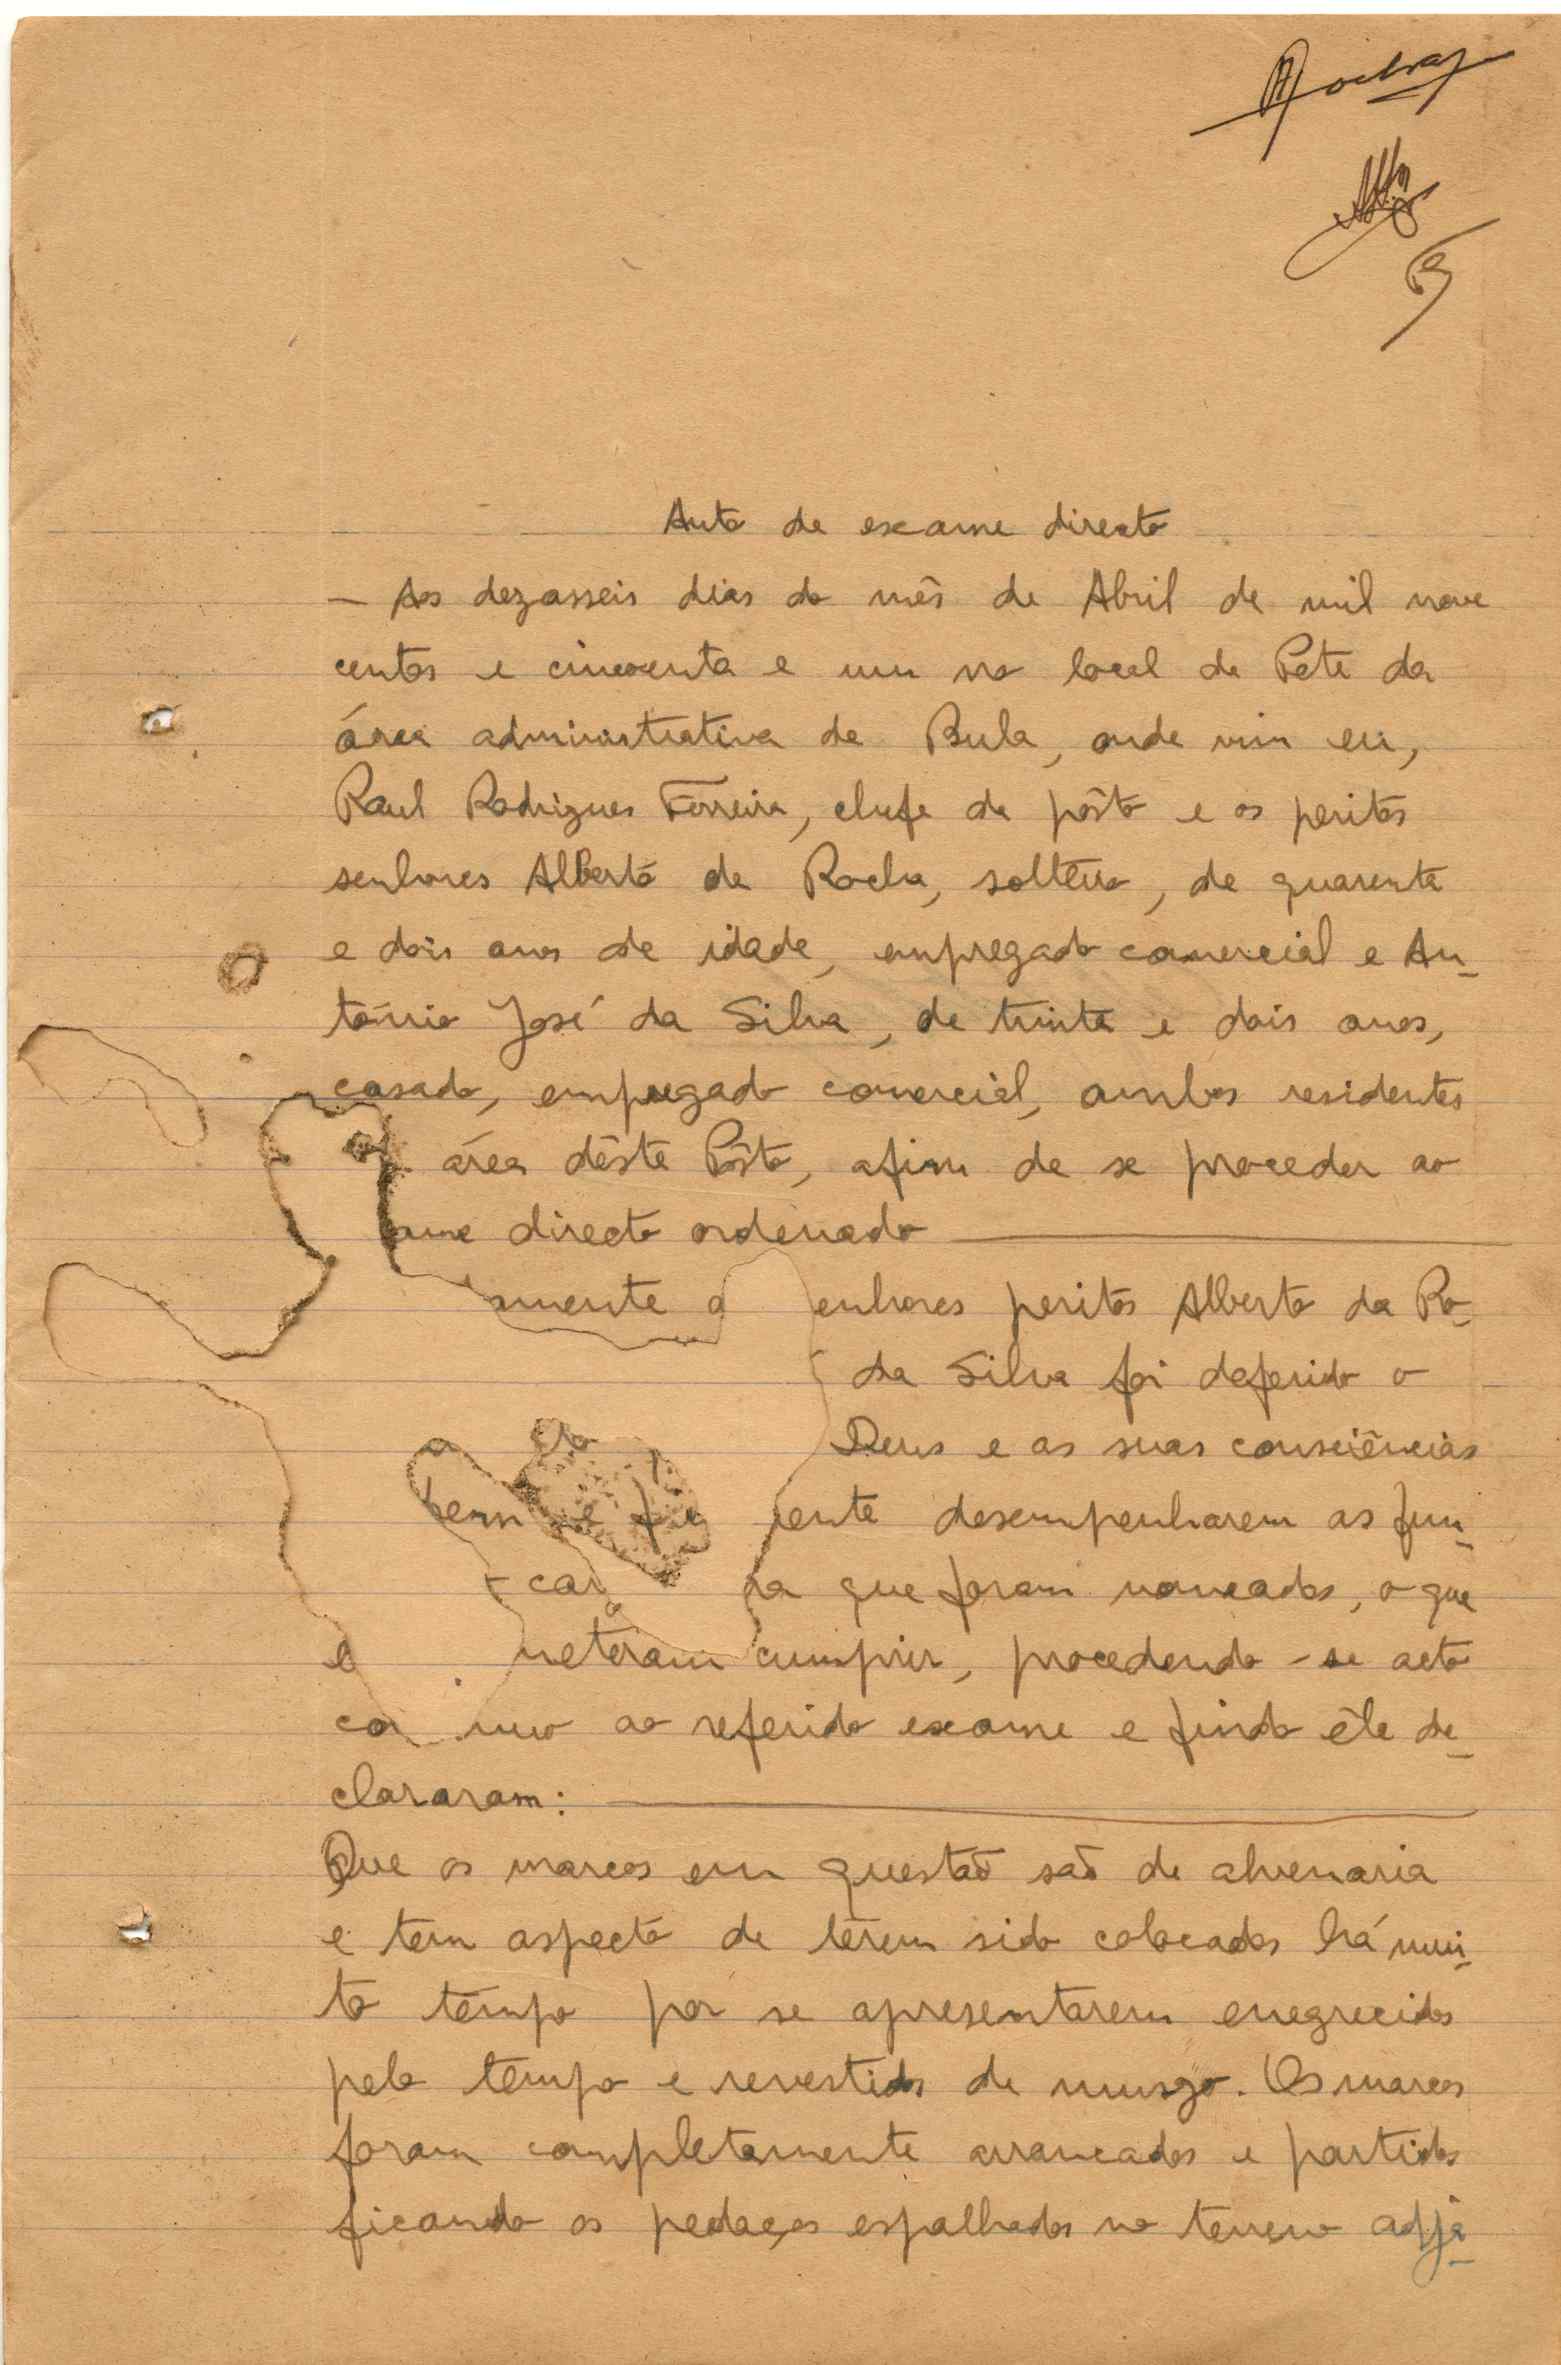 Rocha
Auto de exame directo
— Aos dezasseis dias do mês de Abril de mil nove
centos e cincoenta e um no local de Pete da
área administrativa de Bula, onde vim eu,
Raul Rodrigues Ferreira, chefe de pôsto e os peritos
senhores Alberto da Rocha, solteiro, de quarenta
e dois anos de idade, empregado comercial e An-
tónio José da Silva, de trinta e dois anos,
casado, empregado comercial, ambos residentes
área dêste Pôsto, afim de se proceder ao
ame directo ordenado
mente a enhores peritos Alberto da Ro-
da Silva foi deferido o
Deus e as suas consciências
bem e fi ente desempenharem as fun-
car ra que foram nomeados, o que
e meteram cumprir, procedendo-se acto
con nuo ao referido exame e findo êle de-
clararam:
Que os marcos em questão são de alvenaria
e tem aspecto de terem sido colocados há mui-
to tempo por se apresentarem enegrecidos
pelo tempo e revestidos de musgo. Os marcos
foram completamente arrancados e partidos
ficando os pedaços espalhados no terreno adja-